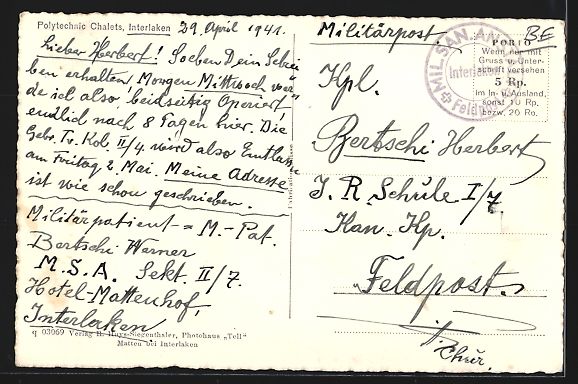 Polytechnic Chalets, Interlaken 29. April 1941.
Lieber Herbert! Soeben Dein Schrei-
ben erhalten Morgen Mittwoch wer-
de ich also beidseitig Operiert
endlich nach 8 Tagen hier. Die
Geb. Tr. Kol. II/4. wird also Entlasse
am Freitag 2. Mai. Meine Adresse
ist wie schon geschrieben.
Militärpatient = M.-Pat.
Bertschi Werner
M.S.A. Sekt. II/7.
Hotel-Mattenhof,
Interlaken
q 03069 Verlag H. Huys-Siegenthaler, Photohaus „Tell"
Matten bei Interlaken
Militärpost
BE
MIL. SAN. AN
Interlaken
Feldpost
PORTO
Wenn nur mit
Gruss u. Unter-
schrift versehen
5 Rp.
im In- u. Ausland,
sonst 10 Rp.
bezw. 20 Ro.
Kpl.
Bertschi Herbert
J. R Schule I/7.
Kan. Kp.
Feldpost.
Chur.